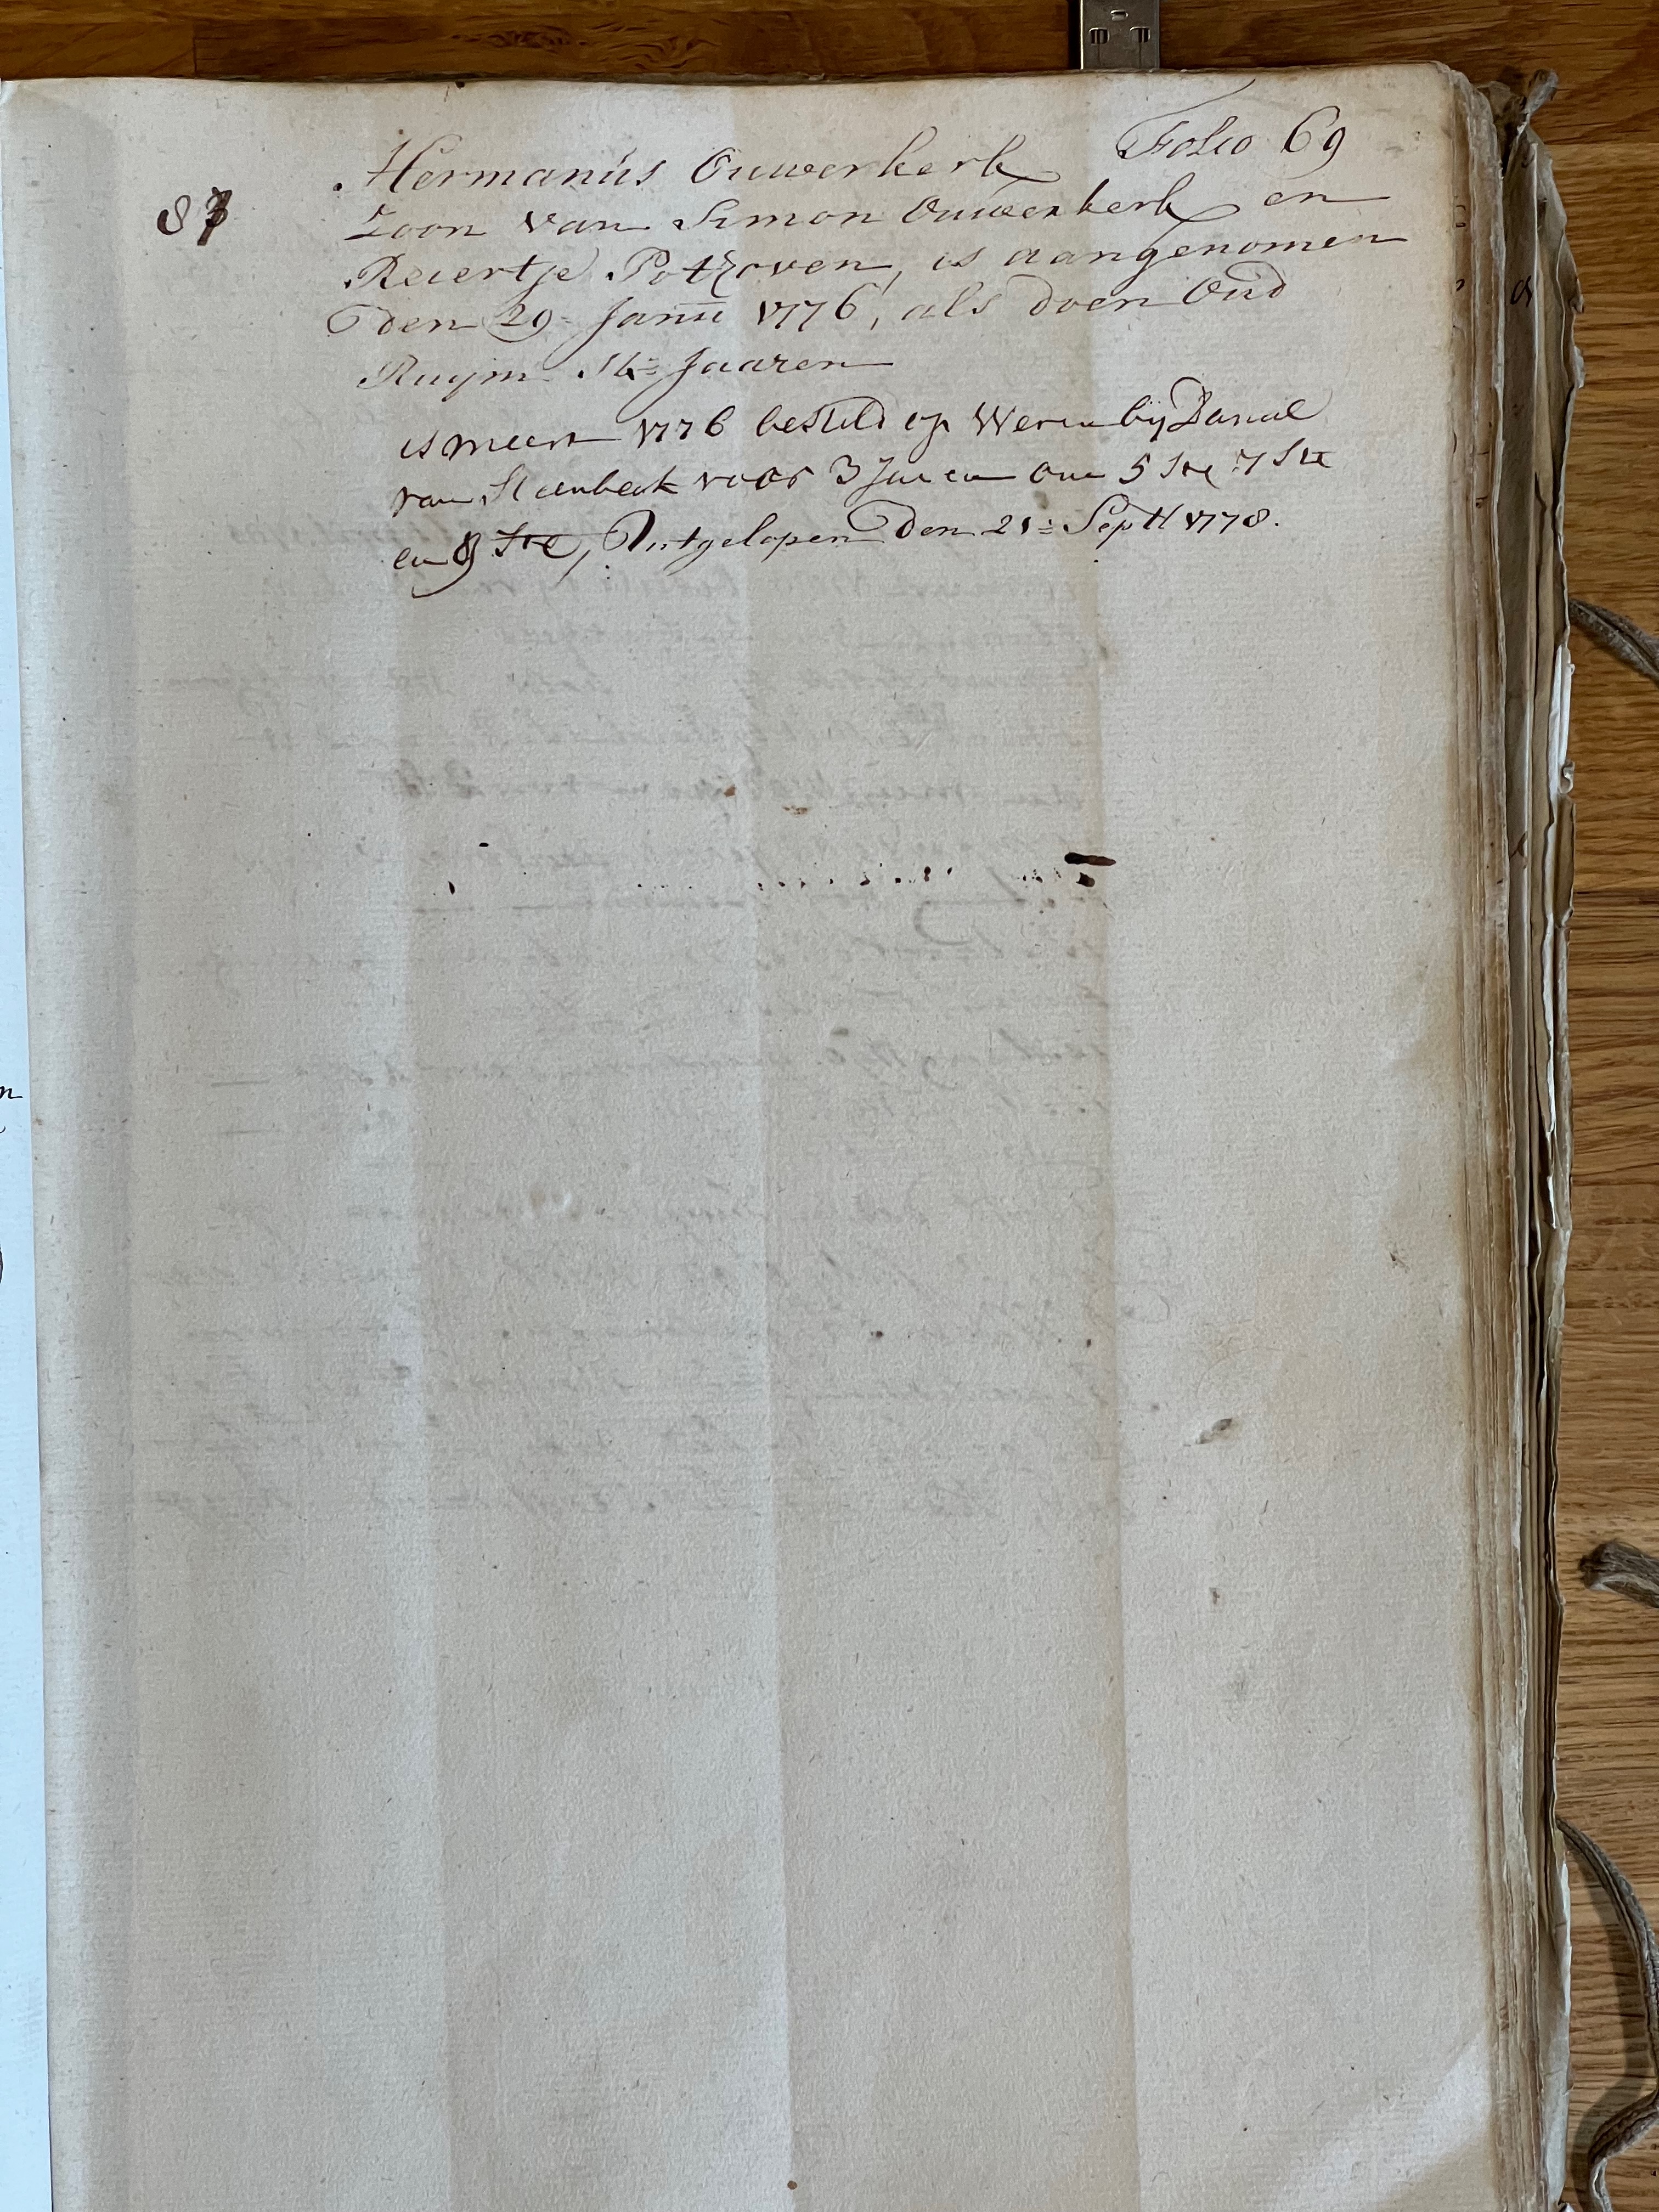 Folio 69
87
Hermanus Ouwerkerk
Zoon van Simon Ouwerkerk en
Reiertje Pothoven, is aangenomen
den 29 Janu 1776, als doen Oud
Ruijm Jaaren
is meert 1776 besteld op Weven bij Danieel
van Steenbeek voor 3 Jaeren om 5 Ste 7 Ste
en 9 Ste, Uutgelopen Den 21: Sept 1778.